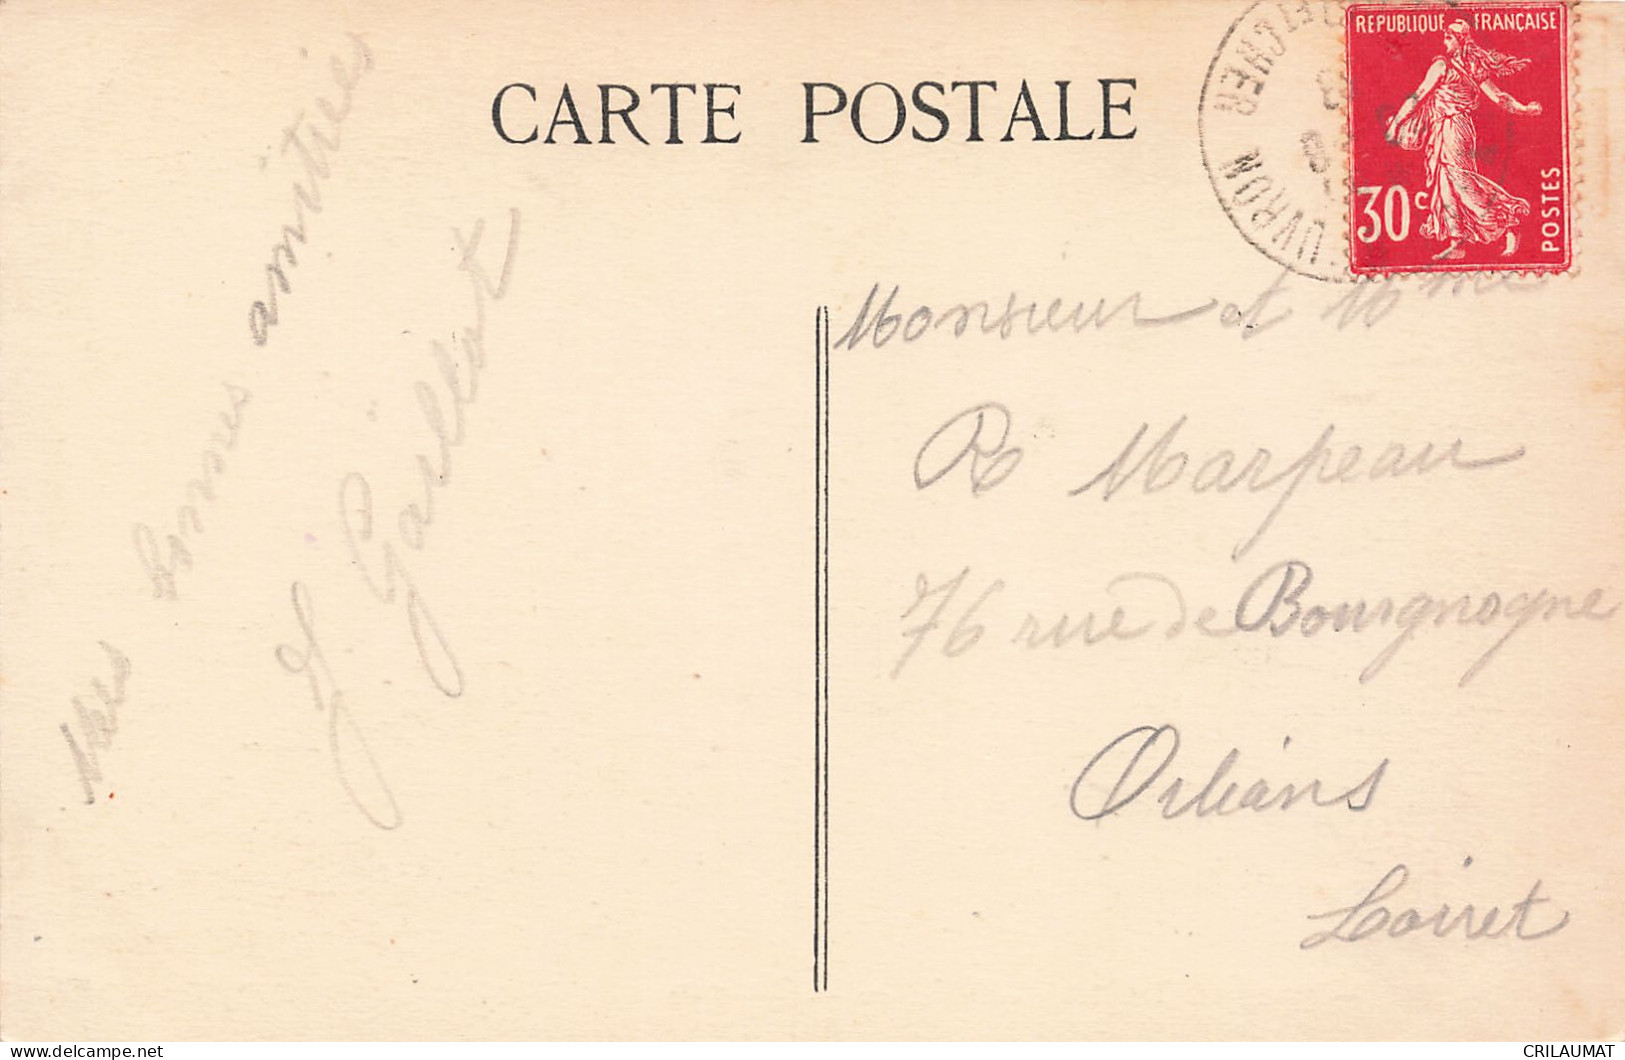 CARTE POSTALE
REPUBLIQUE FRANÇAISE
30c
POSTES
UVRON
ET CHER
Mes bonnes amitiés
J. Gaillot
Monsieur et Mme
R Marpeau
76 rue de Bourgnogne
Orléans
Loiret
delcampe.net
CRILAUMAT